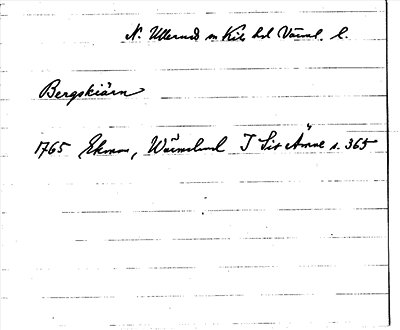 N. Ullerud sn Kils hd Värml. l.
Bergskiärn
1765 Ekman, Wärmland I s. 365